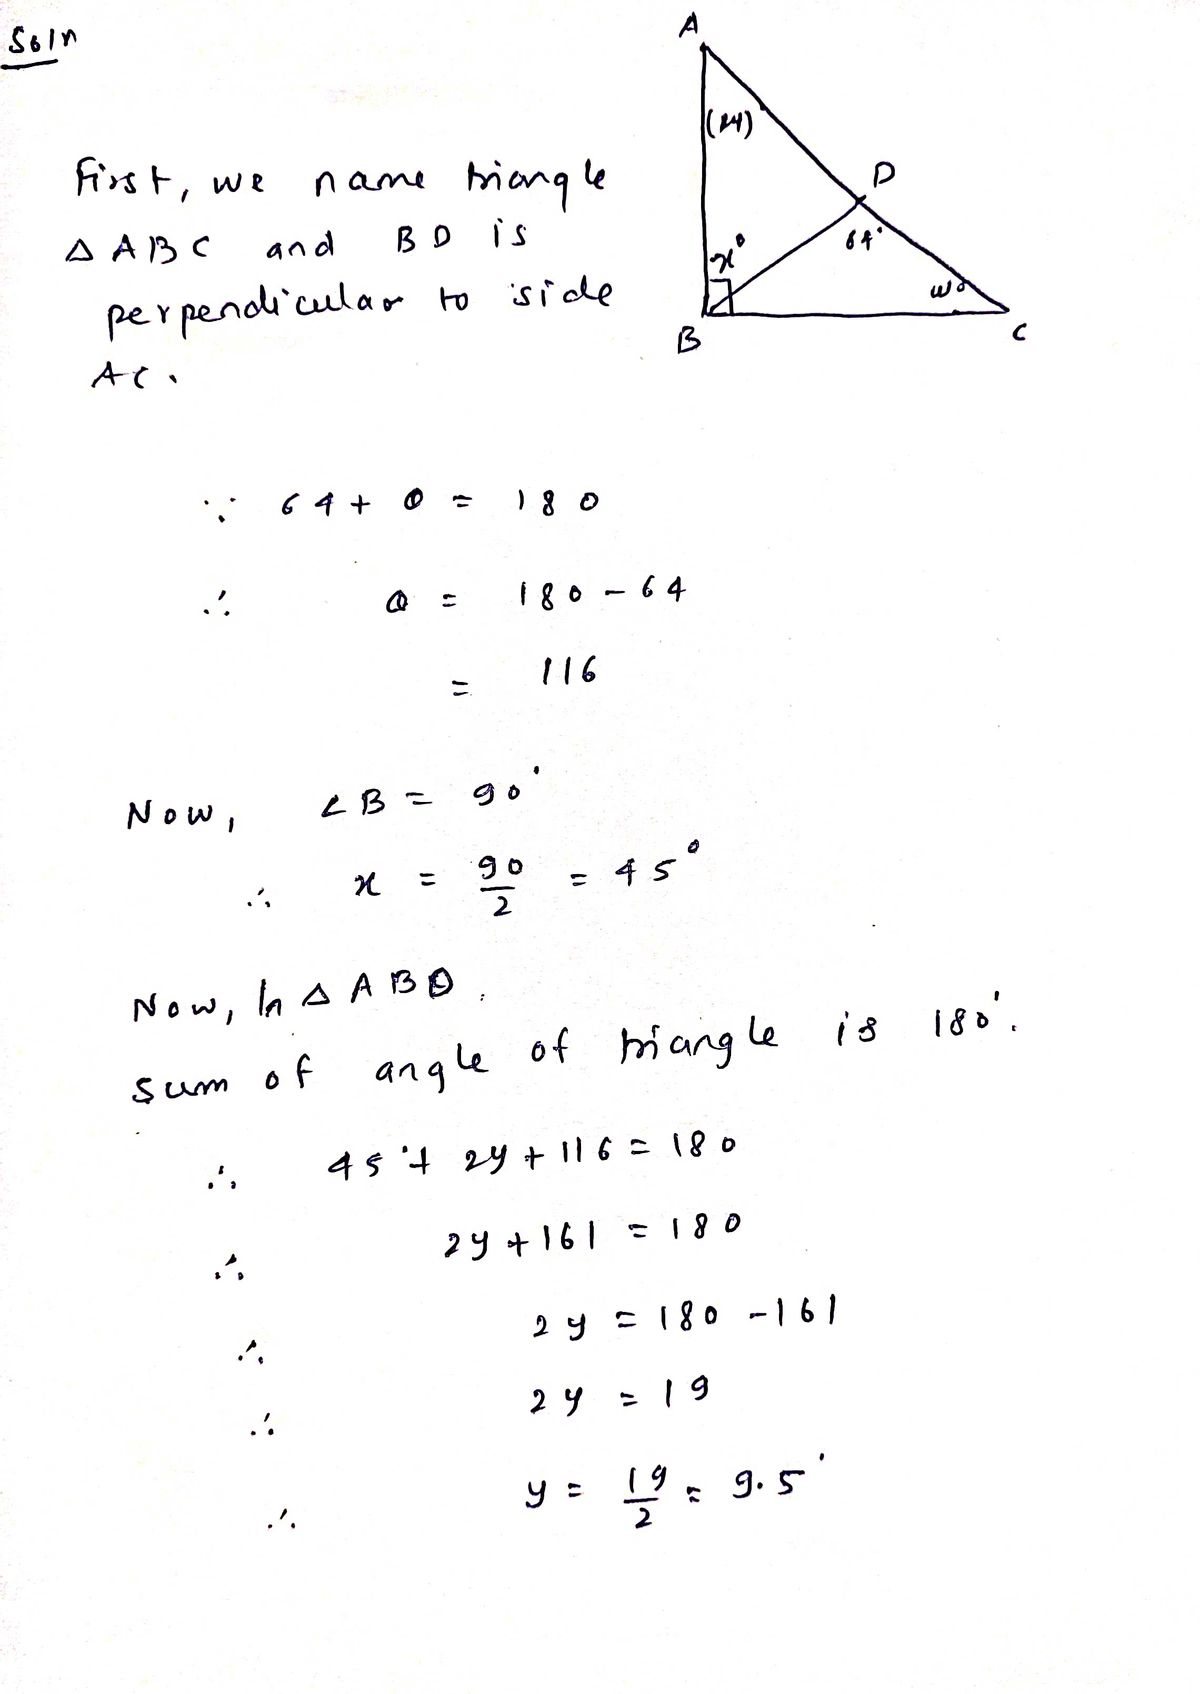 Soln
A
(2y)
D
64°
x°
w°
B
C
First, we name triangle
△ ABC and BD is
perpendicular to side
AC.
∵ 64 + θ = 180
∴ θ = 180 - 64
= 116
Now, ∠B = 90°
∴ x = 90/2 = 45°
Now, In △ ABD.
sum of angle of triangle is 180°.
∴ 45° + 2y + 116 = 180
∴ 2y + 161 = 180
∴ 2y = 180 - 161
∴ 2y = 19
∴ y = 19/2 = 9.5°